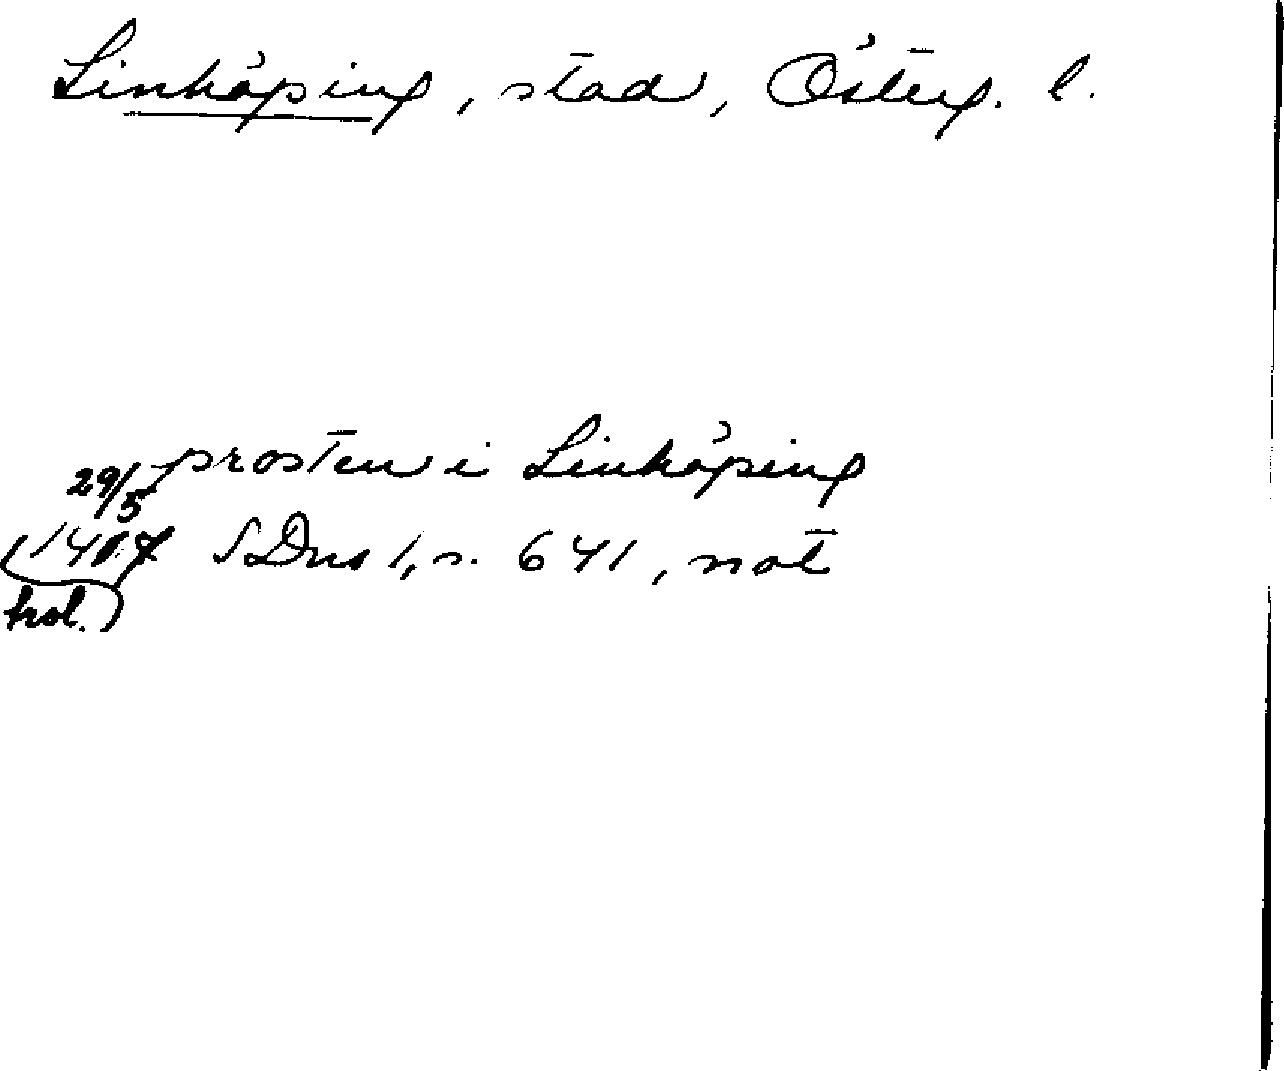 Linköping, stad, Österg. l.
29/5 prosten i Linköping
1407 SDns 1, s. 641, not